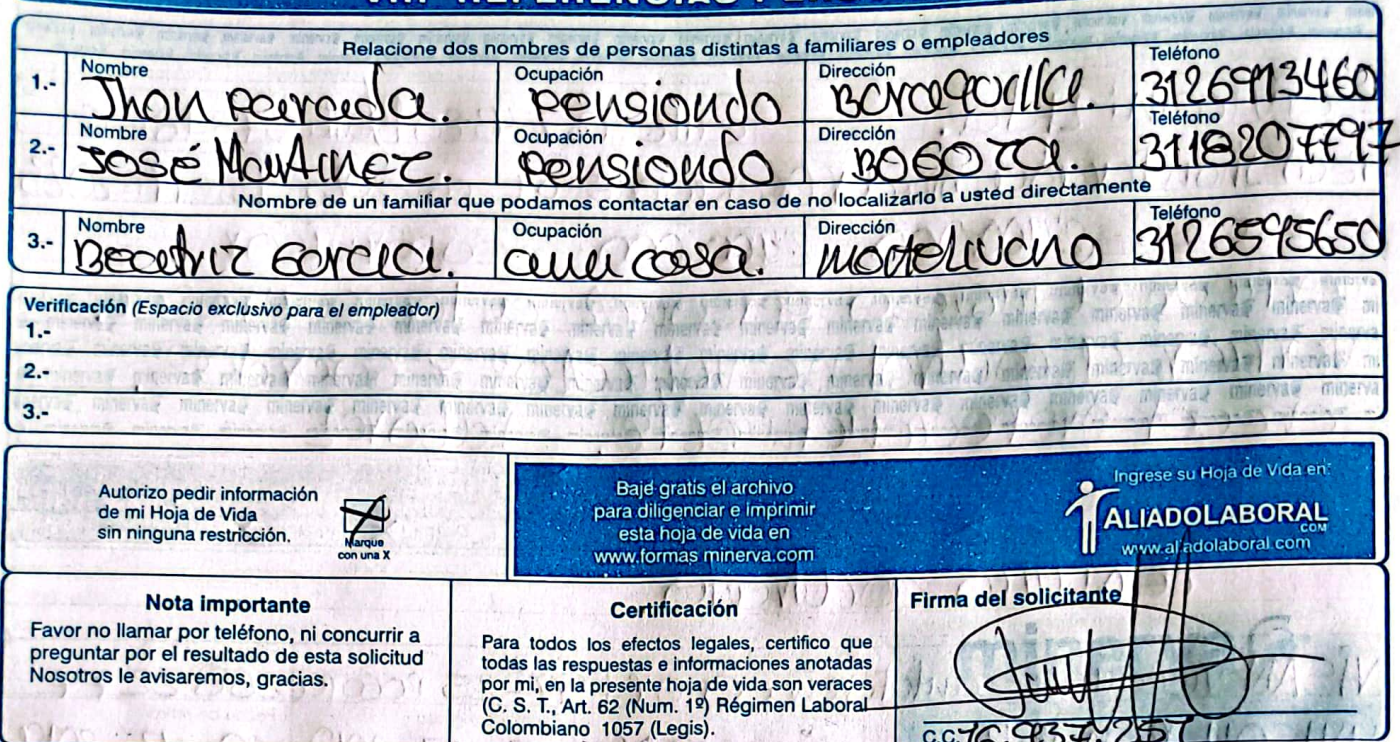 Relacione dos nombres de personas distintas a familiares o empleadores
1.- Nombre Jhon Parada. Ocupación Pensiondo Dirección Teléfono
2.- Nombre José Martinez. Ocupación Pensiondo Dirección BOGOTA. Teléfono 3118207797
Nombre de un familiar que podamos contactar en caso de no localizarlo a usted directamente
3.- Nombre Beatriz Garcia. Ocupación casa. Dirección Teléfono 3126595650
Verificación (Espacio exclusivo para el empleador)
1.-
2.-
3.-
Autorizo pedir información
de mi Hoja de Vida
sin ninguna restricción.
Marque
con una X
Baje gratis el archivo
para diligenciar e imprimir
esta hoja de vida en
www.formas minerva.com
Ingrese su Hoja de Vida en:
ALIADOLABORAL
.COM
www.aliadolaboral com
Nota importante
Favor no llamar por teléfono, ni concurrir a
preguntar por el resultado de esta solicitud
Nosotros le avisaremos, gracias.
Certificación
Para todos los efectos legales, certifico que
todas las respuestas e informaciones anotadas
por mi, en la presente hoja de vida son veraces
(C. S. T., Art. 62 (Num. 1º) Régimen Laboral
Colombiano 1057 (Legis).
Firma del solicitante
C.C.